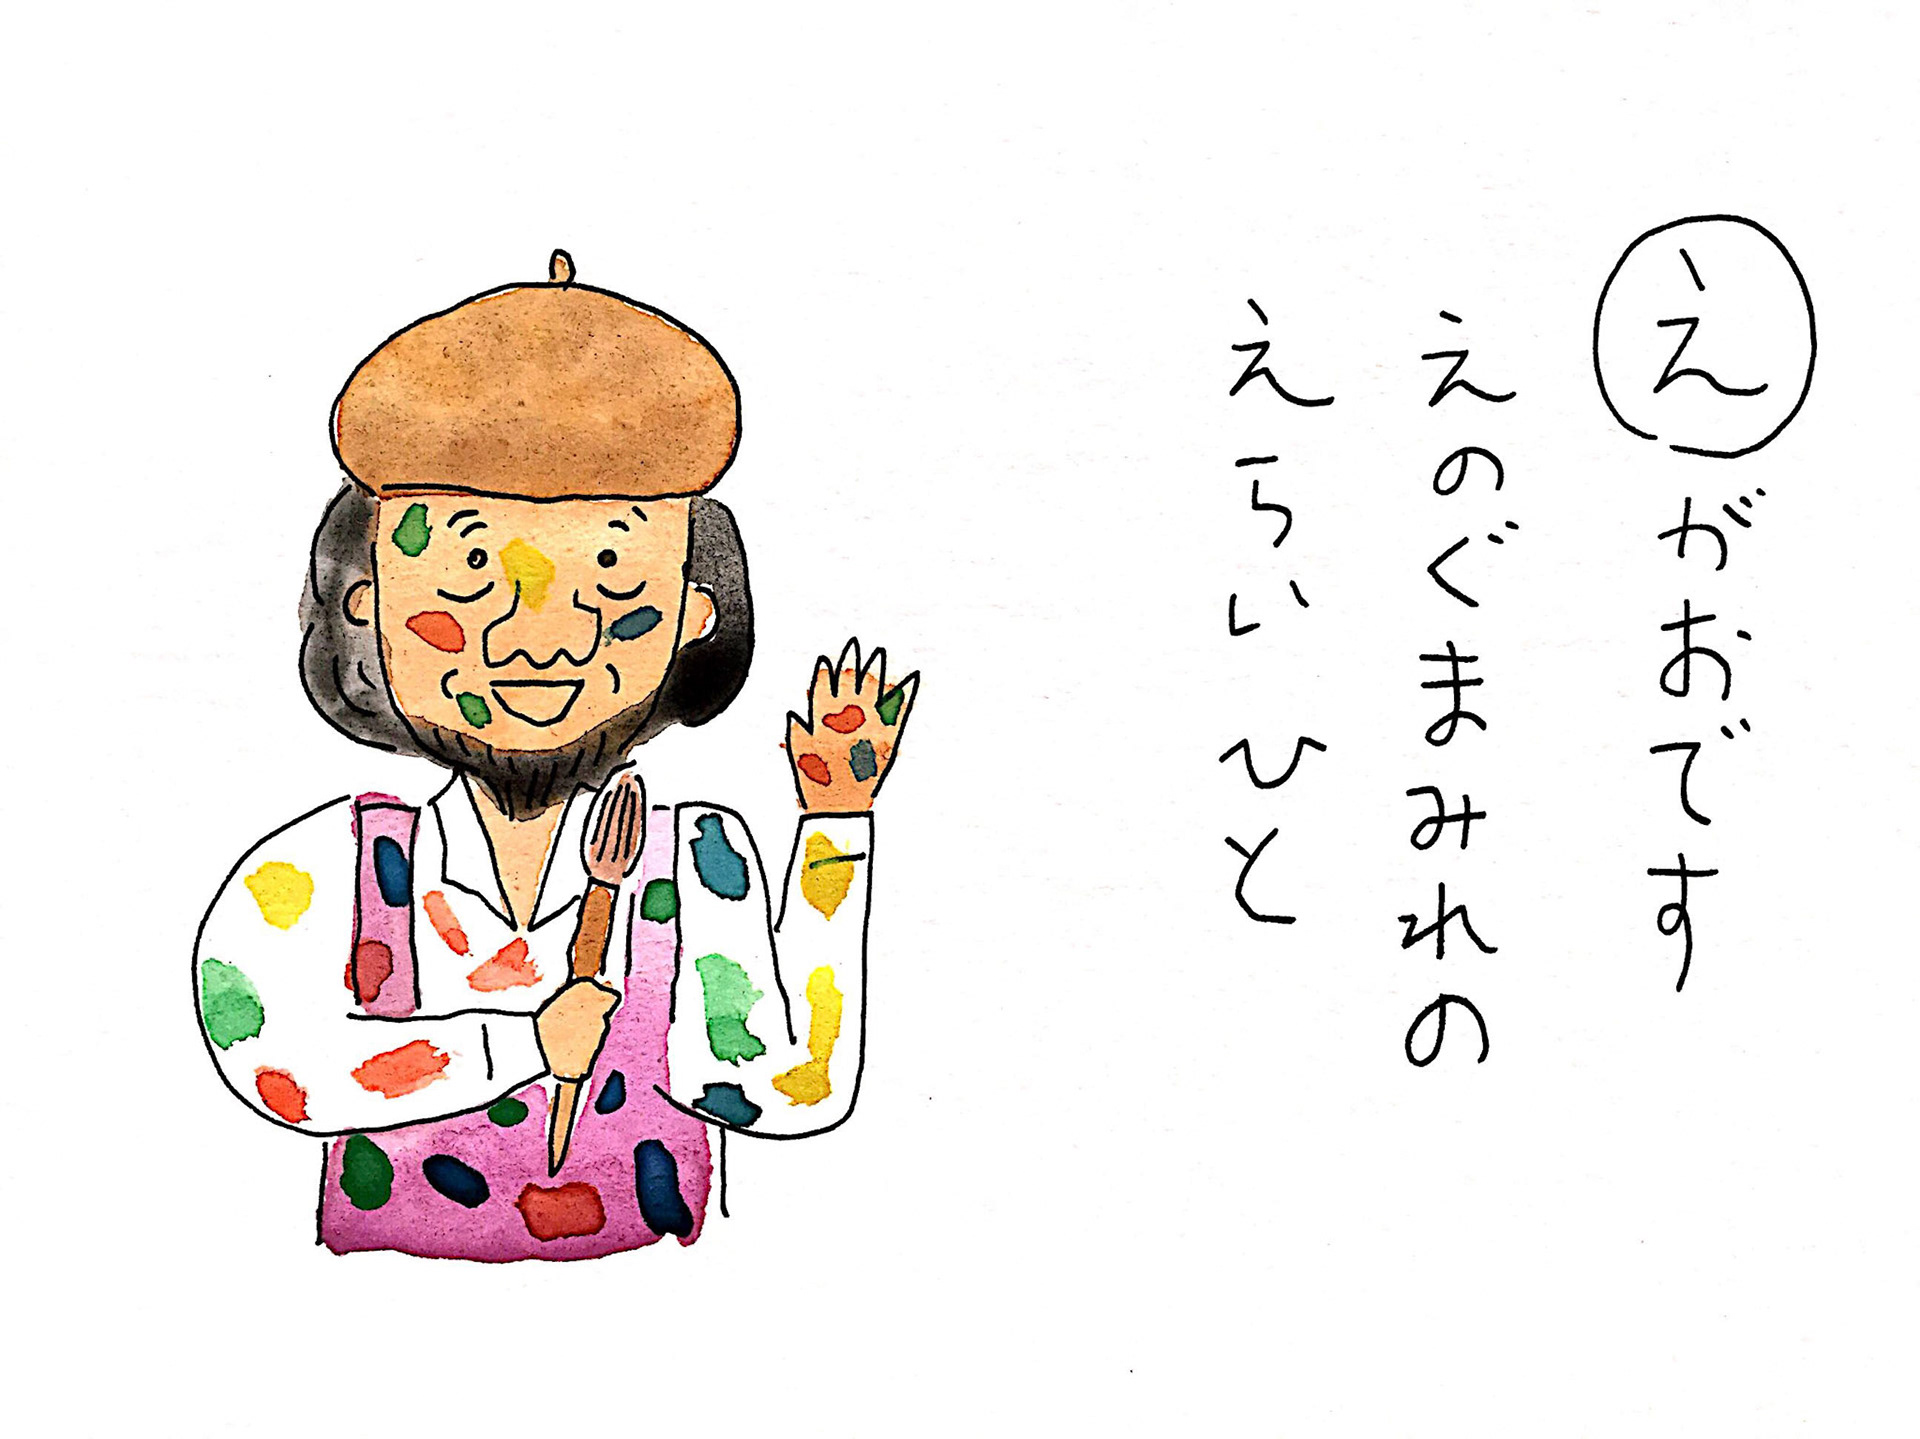 えがおです
えのぐまみれの
えらいひと